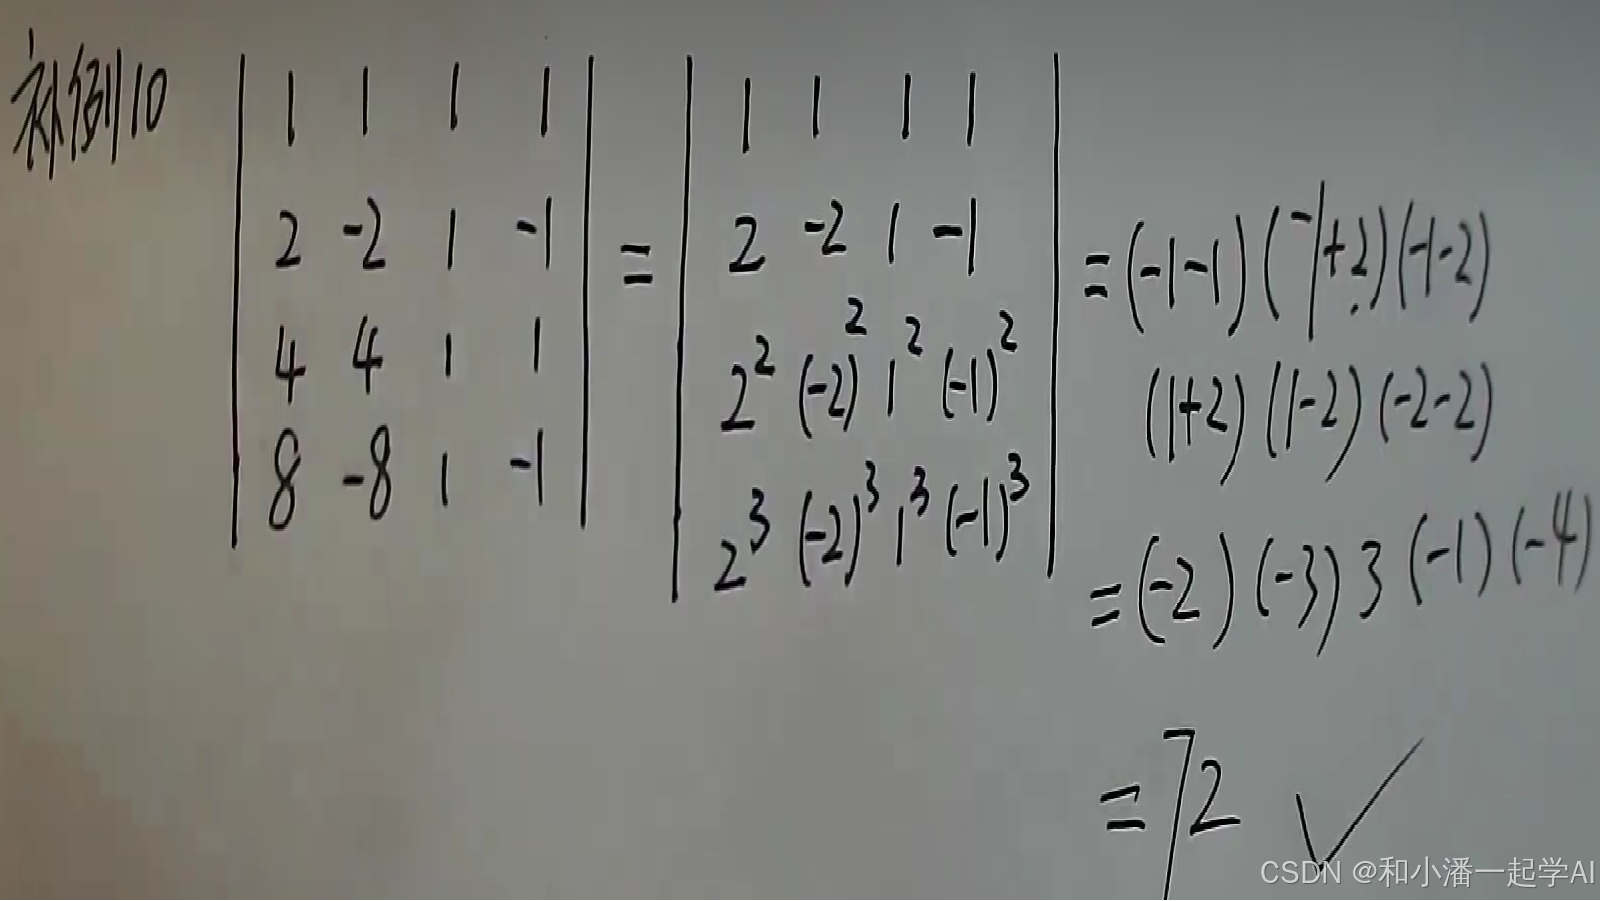 补例10
1 1 1 1
2 -2 1 -1
4 4 1 1
8 -8 1 -1
=
1 1 1 1
2 -2 1 -1
2² (-2)² 1² (-1)²
2³ (-2)³ 1³ (-1)³
=(-1-1)(-1+2)(-1-2)
(1+2)(1-2)(-2-2)
=(-2)(-3)3(-1)(-4)
=72 ✓
CSDN @和小潘一起学AI